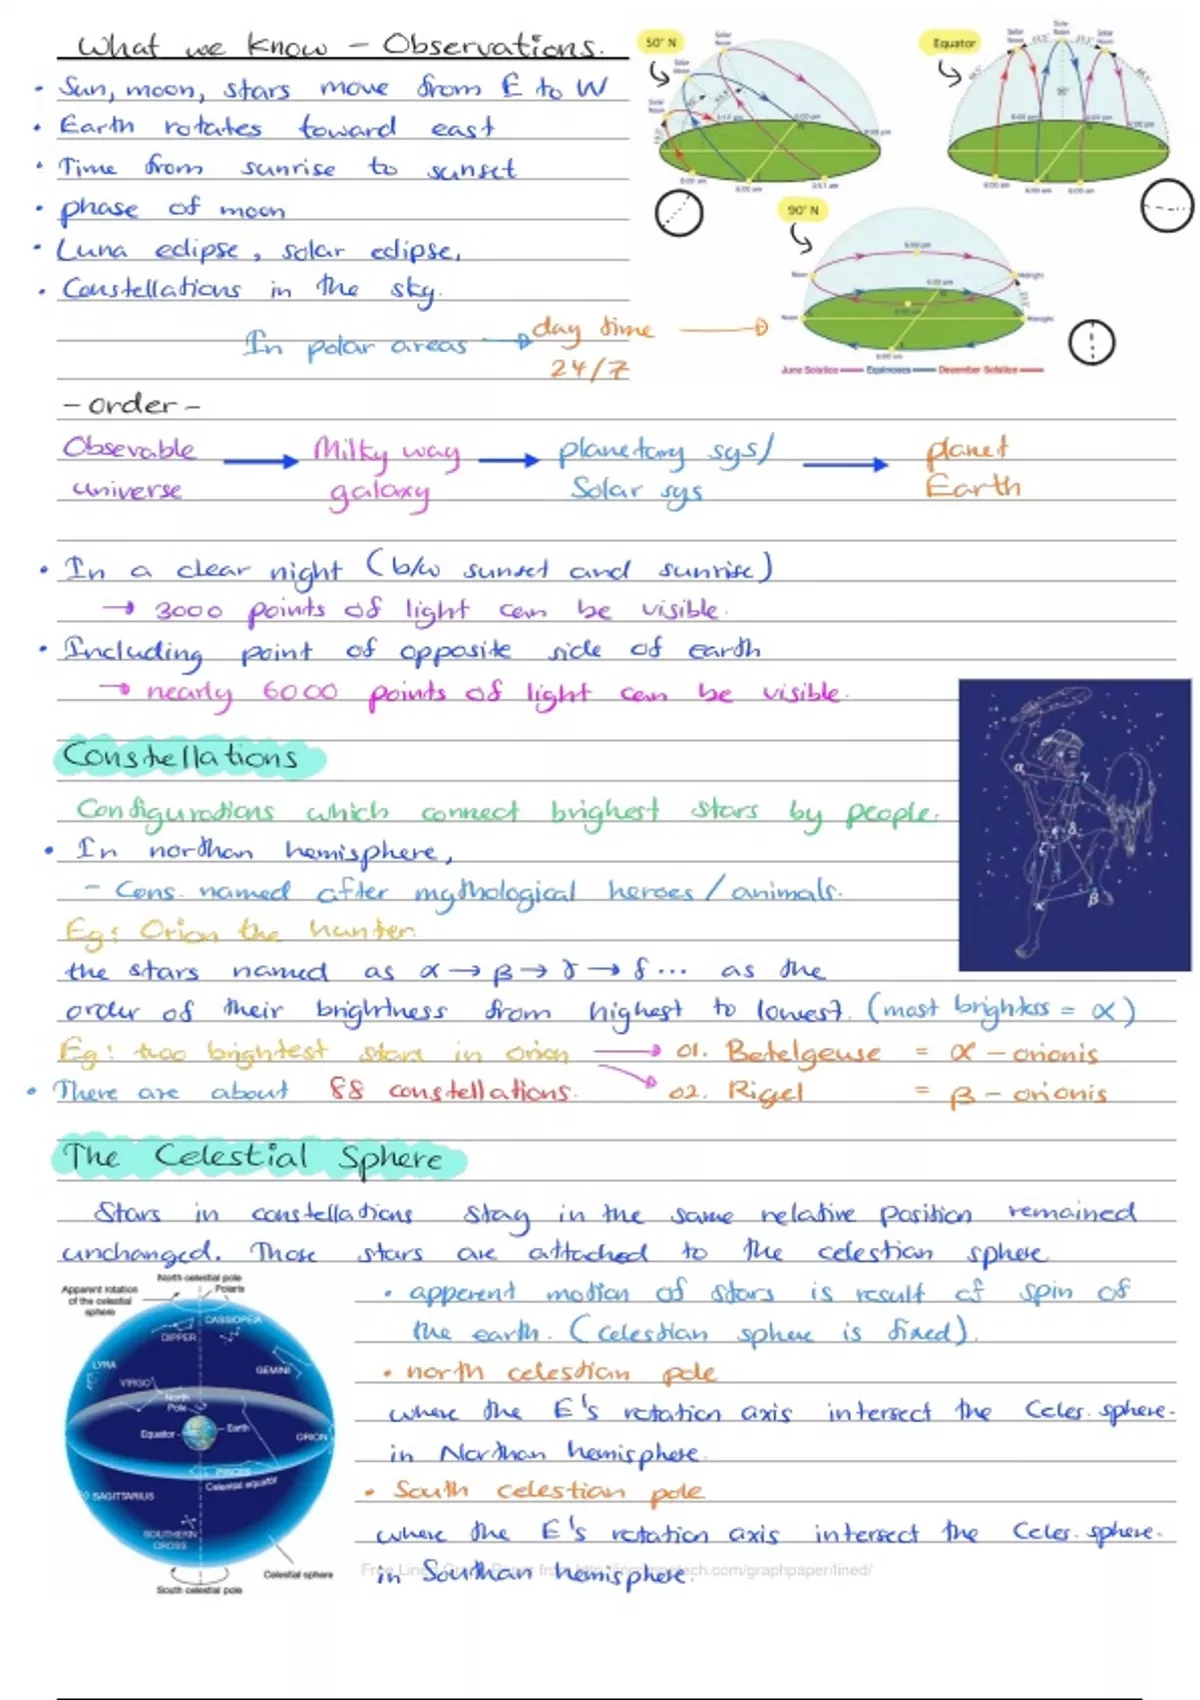 What we know - Observations.
• Sun, moon, stars move from E to W
• Earth rotates toward east
• Time from sunrise to sunset
• phase of moon
• Luna eclipse, solar eclipse,
• Constellations in the sky.
In polar areas → day time → 
24/7
50° N
Solar Noon
Solar Noon
Solar Noon
Equator
Solar Noon
Solar Noon
Solar Noon
90°
6:00 am
6:00 am
6:00 am
90° N
6:00 pm
Noon
Midnight
6:00 pm
Noon
Midnight
6:00 am
June Solstice Equinoxes December Solstice
- order -
Obsevable → Milky way → planetary sys/ → planet
universe galaxy Solar sys Earth
• In a clear night (b/w sunset and sunrise)
→ 3000 points of light can be visible.
• Including point of opposite side of earth
→ nearly 6000 points of light can be visible.
Constellations
Configurations which connect brighest stars by people.
• In northan hemisphere,
- Cons. named after mythological heroes/animals.
Eg: Orion the hunter.
the stars named as α → β → γ → δ ... as the
order of their brightness from highest to lowest. (most brightess = α)
Eg: two brightest stars in orion → 01. Betelgeuse = α - orionis
• There are about 88 constellations. 02. Rigel = β - orionis
α
γ
δ
ε
ζ
κ
β
The Celestial Sphere
Stars in constellations stay in the same relative position remained
unchanged. Those stars are attached to the celestian sphere.
• apperent motion of stars is result of spin of
the earth. (Celestian sphere is fixed).
• north celestian pole
where the E's rotation axis intersect the Celes. sphere.
in Northan hemisphere.
• South celestian pole
where the E's rotation axis intersect the Celes. sphere.
in Southan hemisphere.
North celestial pole
Apparent rotation of the celestial sphere
Polaris
CASSIOPEIA
DIPPER
LYRA
GEMINI
VIRGO
North Pole
Equator
Earth
ORION
PISCES
Celestial equator
SAGITTARIUS
SOUTHERN CROSS
Celestial sphere
South celestial pole